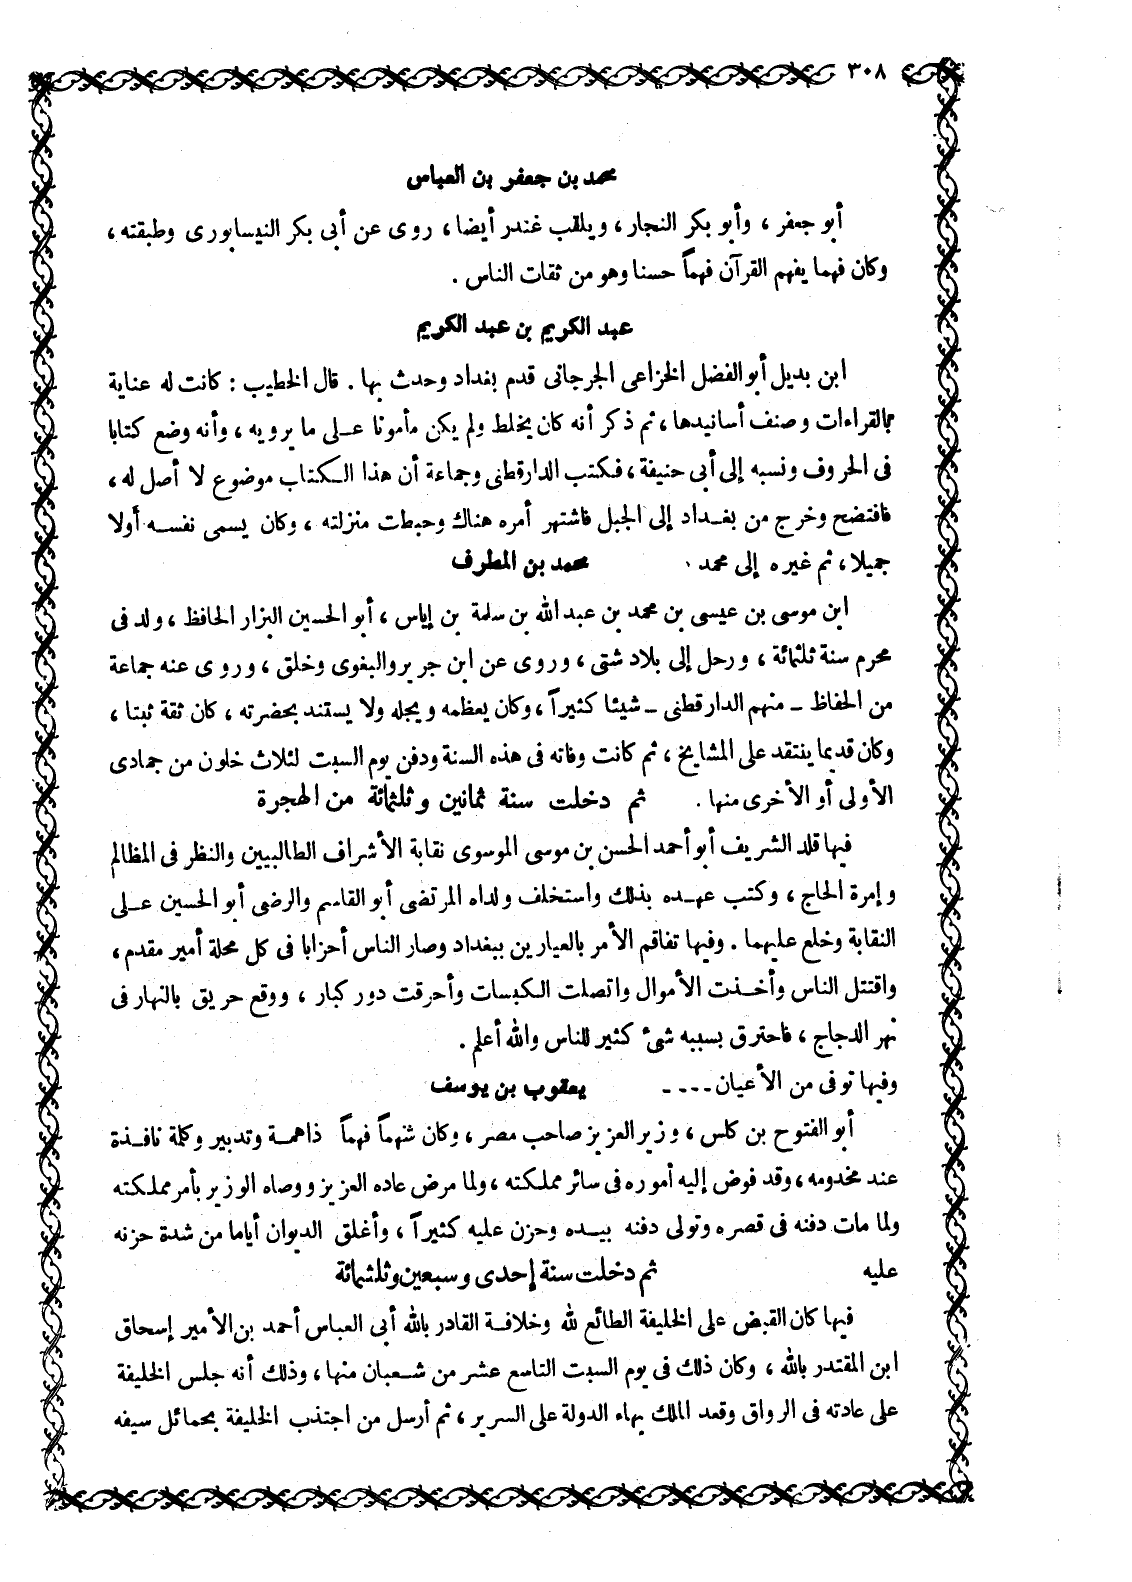 ٣٠٨
محمد بن جعفر بن العباس
أبو جعفر ، وأبو بكر النجار ، ويلقب غندر أيضا ، روى عن أبى بكر النيسابورى وطبقته ،
وكان فهما يفهم القرآن فهماً حسنا وهو من ثقات الناس .
عبد الكريم بن عبد الكريم
ابن بديل أبو الفضل الخزاعى الجرجانى قدم بغداد وحدث بها . قال الخطيب : كانت له عناية
بالقراءات وصنف أسانيدها ، ثم ذكر أنه كان يخلط ولم يكن مأمونا على ما يرويه ، وأنه وضع كتابا
فى الحروف ونسبه إلى أبى حنيفة ، فكتب الدارقطنى وجماعة أن هذا الكتاب موضوع لا أصل له ،
فافتضح وخرج من بغداد إلى الجبل فاشتهر أمره هناك وحبطت منزلته ، وكان يسمى نفسه أولا
جميلا ، ثم غيره إلى محمد . محمد بن المطرف
ابن موسى بن عيسى بن محمد بن عبد الله بن سلمة بن إياس ، أبو الحسين البزار الحافظ ، ولد فى
محرم سنة ثلثمائة ، ورحل إلى بلاد شتى ، وروى عن ابن جرير والبغوى وخلق ، وروى عنه جماعة
من الحفاظ ـ منهم الدارقطنى ـ شيئا كثيراً ، وكان يعظمه ويجله ولا يستند بحضرته ، كان ثقة ثبتا ،
وكان قديما ينتقد على المشايخ ، ثم كانت وفاته فى هذه السنة ودفن يوم السبت لثلاث خلون من جمادى
الأولى أو الأخرى منها . ثم دخلت سنة ثمانين وثلثمائة من الهجرة
فيها قلد الشريف أبو أحمد الحسن بن موسى الموسوى نقابة الأشراف الطالبيين والنظر فى المظالم
وإمرة الحاج ، وكتب عهده بذلك واستخلف ولداه المرتضى أبو القاسم والرضى أبو الحسين على
النقابة وخلع عليهما . وفيها تفاقم الأمر بالعيارين ببغداد وصار الناس أحزابا فى كل محلة أمير مقدم ،
واقتتل الناس وأخذت الأموال واتصلت الكبسات وأحرقت دور كبار ، ووقع حريق بالنهار فى
نهر الدجاج ، فاحترق بسببه شئ كثير للناس والله أعلم .
وفيها توفى من الأعيان ـ ـ ـ ـ يعقوب بن يوسف
أبو الفتوح بن كلس ، وزير العزيز صاحب مصر ، وكان شهماً فهماً ذاهمة وتدبير وكلمة نافذة
عند مخدومه ، وقد فوض إليه أموره فى سائر مملكته ، ولما مرض عاده العزيز ووصاه الوزير بأمر مملكته
ولما مات دفنه فى قصره وتولى دفنه بيده وحزن عليه كثيراً ، وأغلق الديوان أياما من شدة حزنه
عليه ثم دخلت سنة إحدى وسبعين وثلثمائة
فيها كان القبض على الخليفة الطائع لله وخلافة القادر بالله أبى العباس أحمد بن الأمير إسحاق
ابن المقتدر بالله ، وكان ذلك فى يوم السبت التاسع عشر من شعبان منها ، وذلك أنه جلس الخليفة
على عادته فى الرواق وقعد الملك بهاء الدولة على السرير ، ثم أرسل من اجتذب الخليفة بحمائل سيفه